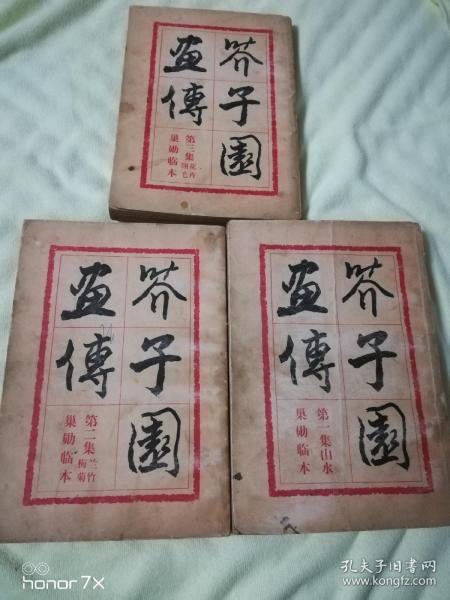 芥子園
畫傳
第三集花卉翎毛
巢勛临本
芥子園
畫傳
第二集兰竹梅菊
巢勛临本
芥子園
畫傳
第一集山水
巢勛临本
honor 7X
孔夫子旧书网
www.kongfz.com